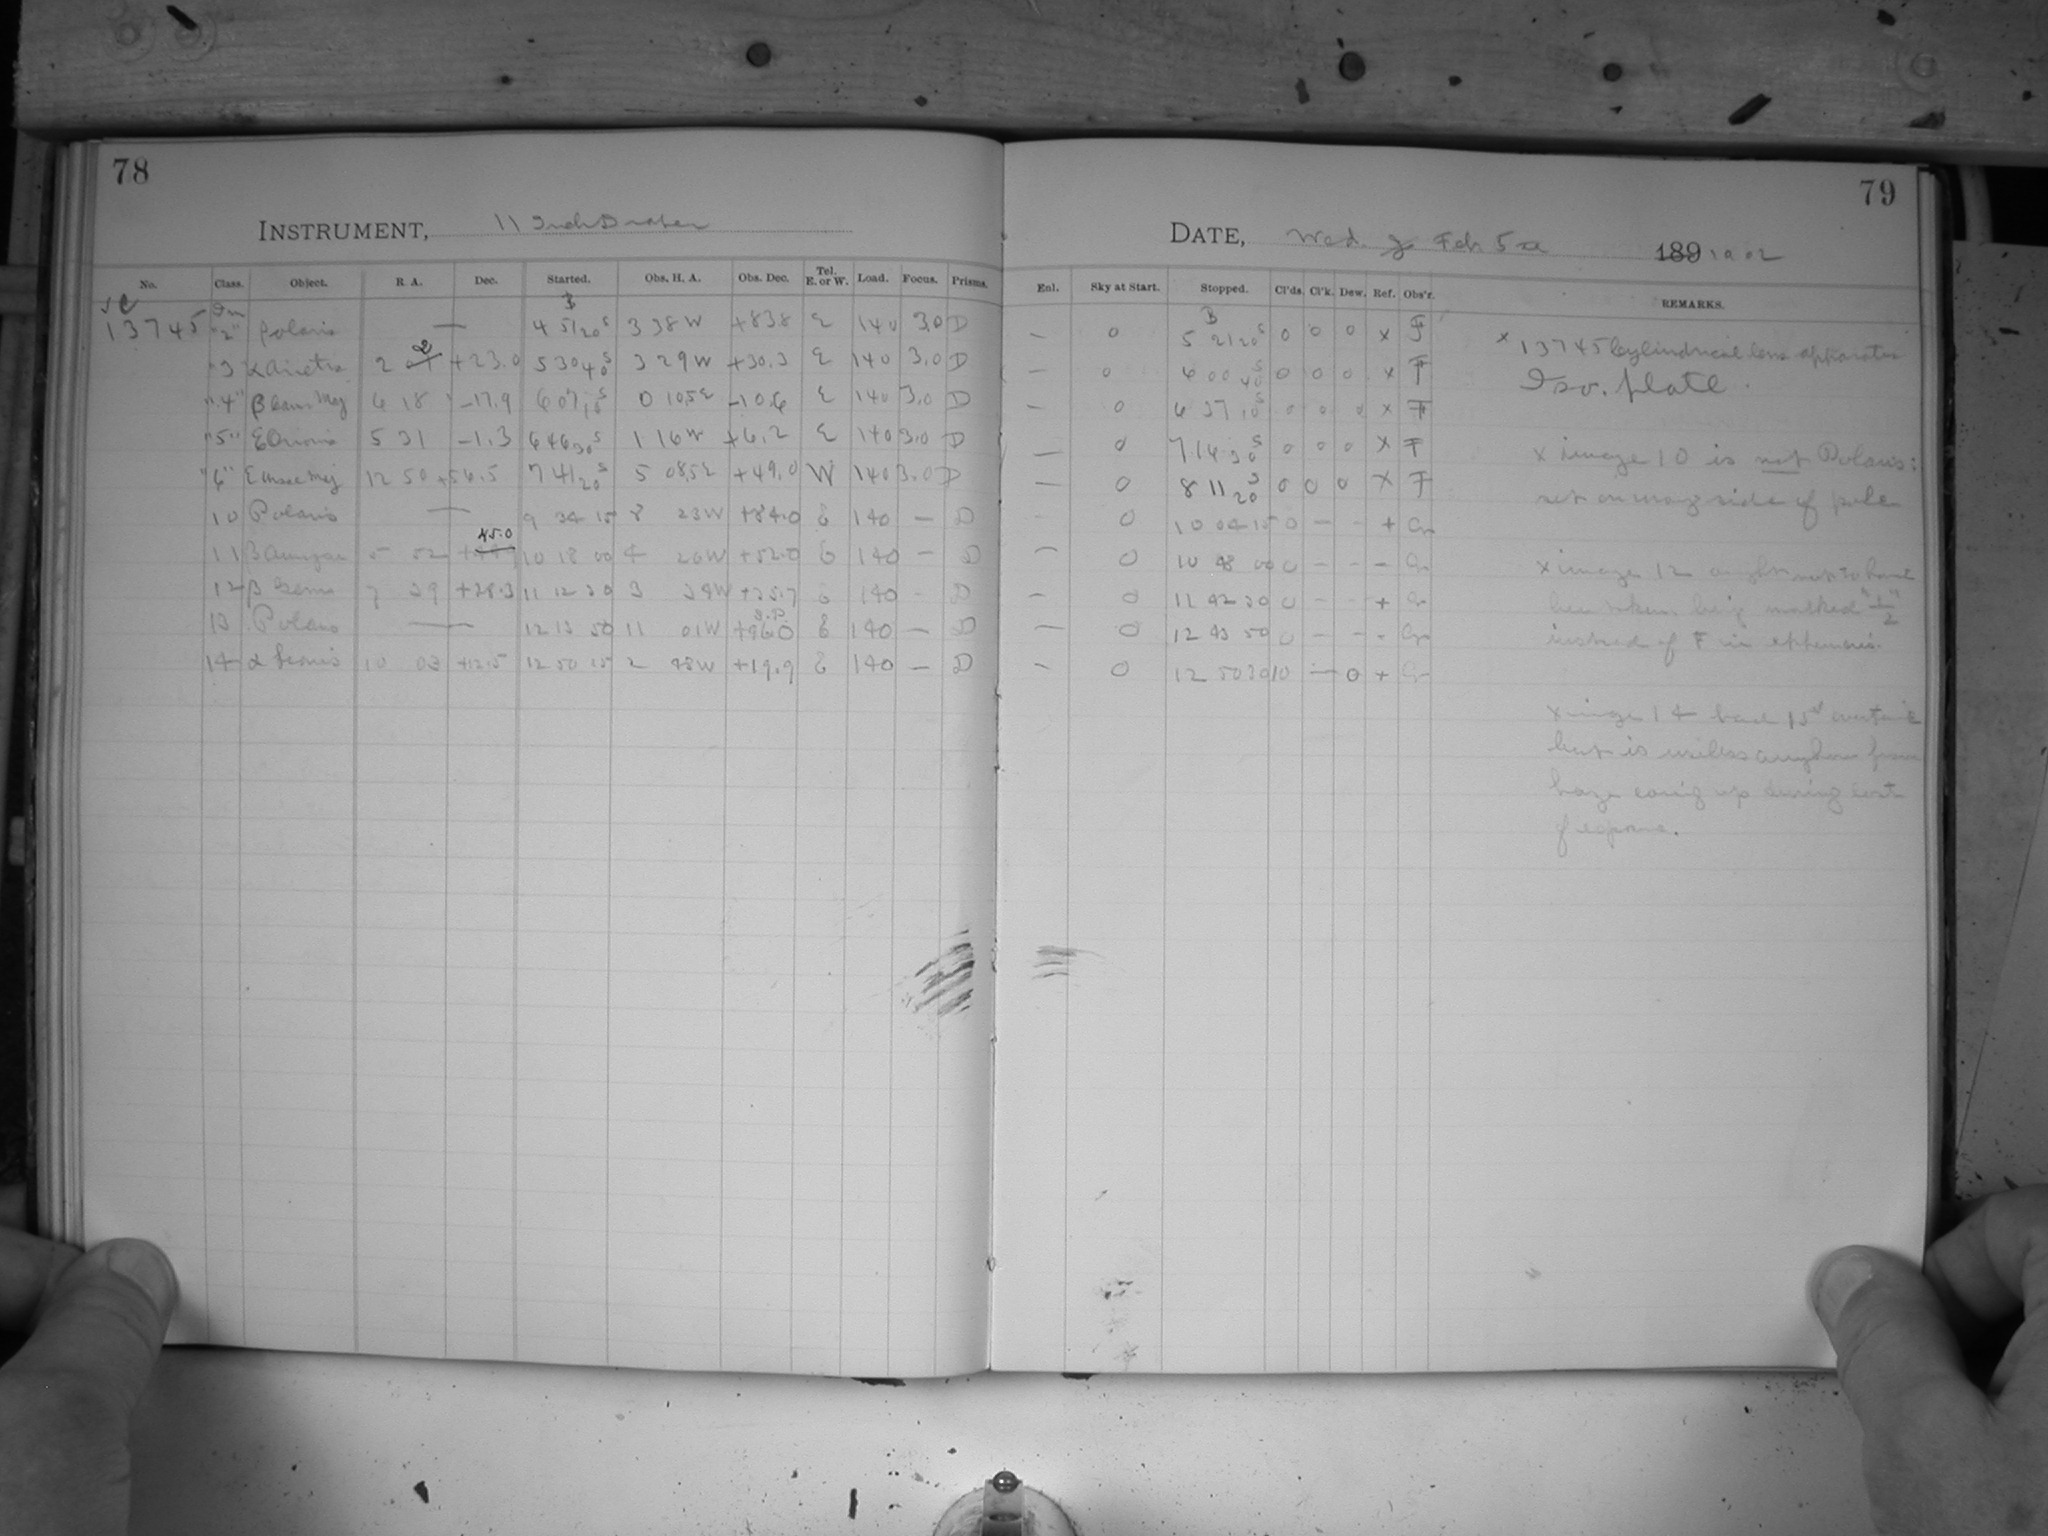 78
INSTRUMENT, 11 Inch Draper
No. Class. Object. R. A. Dec. Started. Obs. H. A. Obs. Dec. Tel. E. or W. Load. Focus. Prisms.
13745 "2" Polaris — 4 51 20 s 3 38 W +83.8 E 140 3.0 D
"3 α Arietis 2 2 +23.0 5 30 40 s 3 29 W +30.3 E 140 3.0 D
"4" β Can. Maj 6 18 -17.9 6 07 10 s 0 10.5 E -10.6 E 140 3.0 D
"5" ε Orionis 5 31 -1.3 6 46 30 s 1 16 W +6.2 E 140 3.0 D
"6" ε Ursae Maj 12 50 +56.5 7 41 20 s 5 08.5 E +49.0 W 140 3.0 D
10 Polaris — 9 34 15 8 23 W +84.0 E 140 — D
11 β Aurigae 5 52 45.0 10 18 00 4 26 W +52.0 E 140 — D
12 β Gem 7 39 +28.3 11 12 30 3 34 W +35.7 E 140 - D
13 Polaris — 12 13 50 11 01 W +86.0 S.P. E 140 — D
14 α Leonis 10 03 +12.5 12 50 15 2 48 W +19.9 E 140 — D
79
DATE, Wed. Feb 5 189 1902
Enl. Sky at Start. Stopped. Cl'ds. Cl'k. Dew. Ref. Obs'r. REMARKS.
— 0 5 21 20 s 0 0 0 x F
— 0 6 00 40 s 0 0 0 x F
— 0 6 37 10 s 0 0 0 x F
— 0 7 14 30 s 0 0 0 x F
— 0 8 11 20 s 0 0 0 x F
— 0 10 04 15 0 — - + Gr
— 0 10 48 00 0 - - - Gr
— 0 11 42 30 0 - - + Gr
— 0 12 43 50 0 - - - Gr
— 0 12 50 30 10 — 0 + Gr
x 13745 Cylindrical lens apparatus
Iso. plate.
x image 10 is not Polaris:
set on wrong side of pole
x image 12 ought not to have
been taken being marked "1/2"
instead of F in ephemeris.
x image 14 had 15s
but is useless anyhow from
haze coming up during last
of exposure.